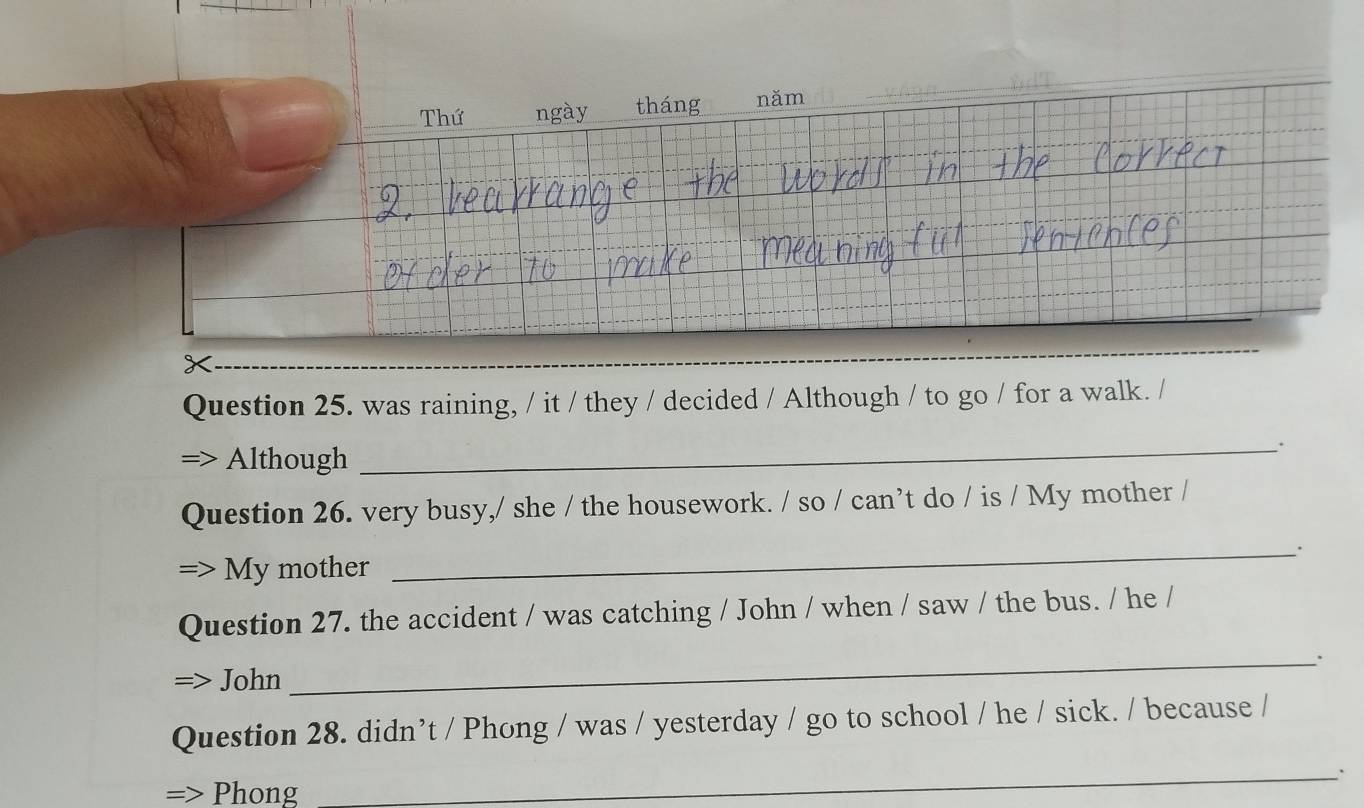 Thứ ngày tháng năm
2. rearrange the words in the correct
order to make meaningful sentences
Question 25. was raining, / it / they / decided / Although / to go / for a walk. /
=> Although ______.
Question 26. very busy,/ she / the housework. / so / can't do / is / My mother /
=> My mother ______.
Question 27. the accident / was catching / John / when / saw / the bus. / he /
=> John ______.
Question 28. didn't / Phong / was / yesterday / go to school / he / sick. / because /
=> Phong ______.